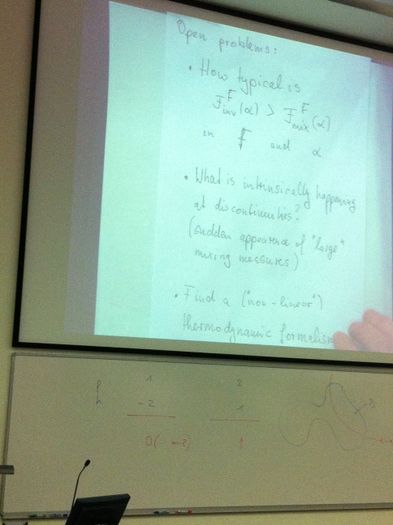 Open problems:
• How typical is
F_inv^F(α) > F_mix^F(α)
in F and α
• What is intrinsically happening
at discontinuities?
(sudden appearence of "large"
mixing measures)
• Find a ("non-linear")
thermodynamic formalism
1 2
-2 1